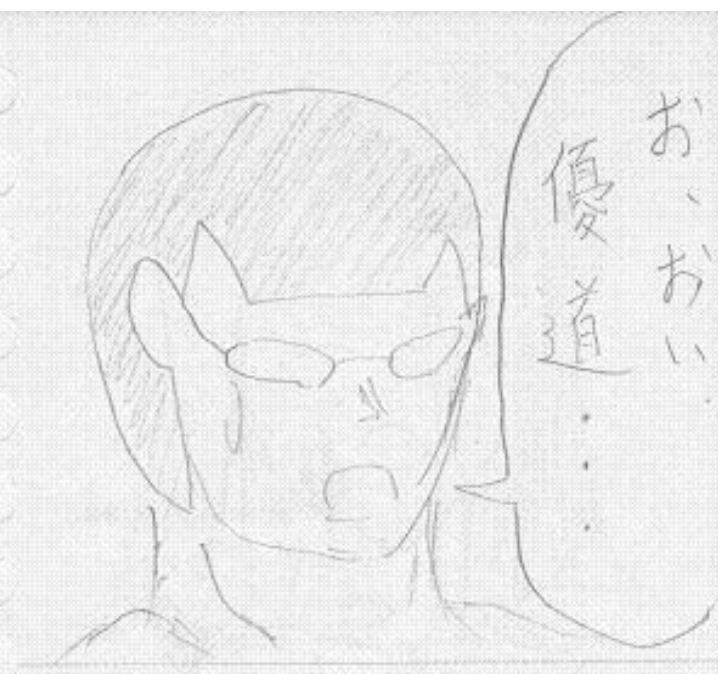 お、おい
優道・・・